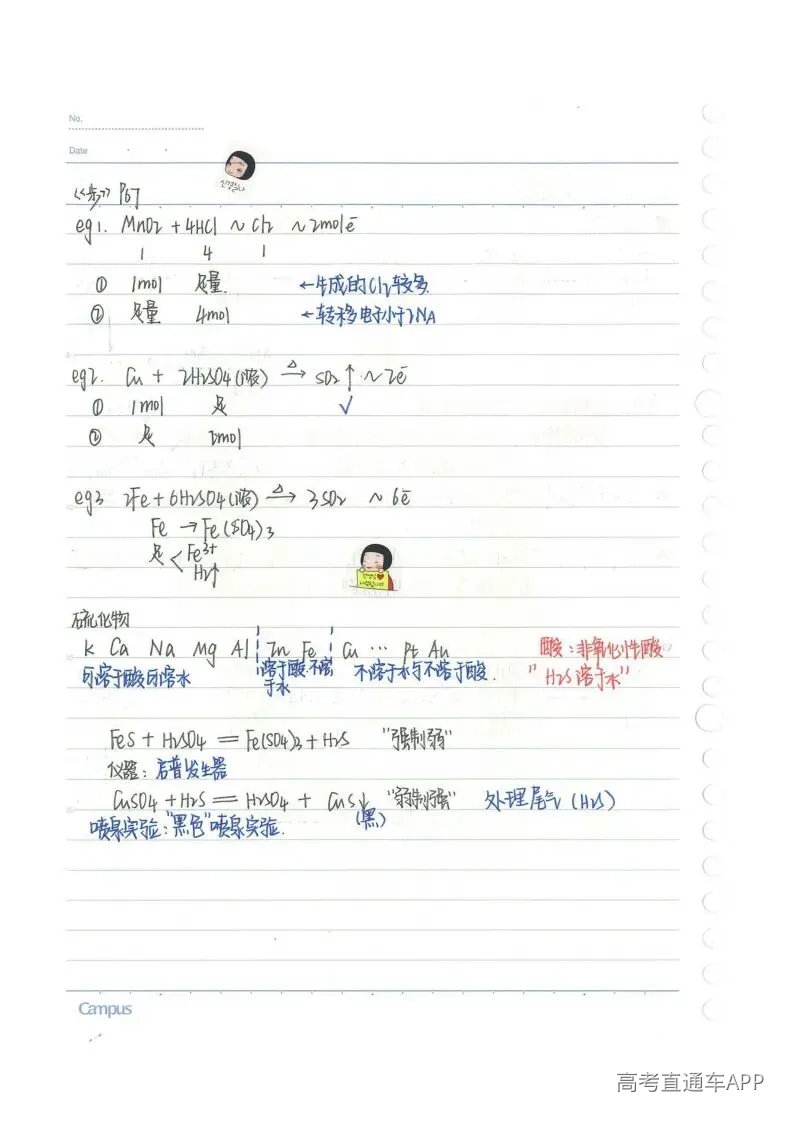 No.
Date
《步》P67
eg1. MnO2 + 4HCl ~ Cl2 ~ 2mol e⁻
1 4 1
① 1mol 足量 ←生成的Cl2较多
② 足量 4mol ←转移电子小于2NA
eg2. Cu + 2H2SO4(浓) —△→ SO2↑ ~ 2e⁻
① 1mol 足 √
② 足 2mol
eg3 2Fe + 6H2SO4(浓) —△→ 3SO2 ~ 6e⁻
Fe → Fe(SO4)3
足 < Fe3+
H2↑
硫化物
K Ca Na Mg Al ¦ Zn Fe ¦ Cu … Pt Au
可溶于酸可溶水 溶于酸.不溶于水 不溶于水与不溶于酸.
酸:非氧化性酸
"H2S溶于水"
FeS + H2SO4 = Fe(SO4)3 + H2S "强制弱"
仪器:启普发生器
CuSO4 + H2S = H2SO4 + CuS↓ "弱制强" 处理尾气(H2S)
(黑)
喷泉实验:"黑色"喷泉实验.
Campus
高考直通车APP